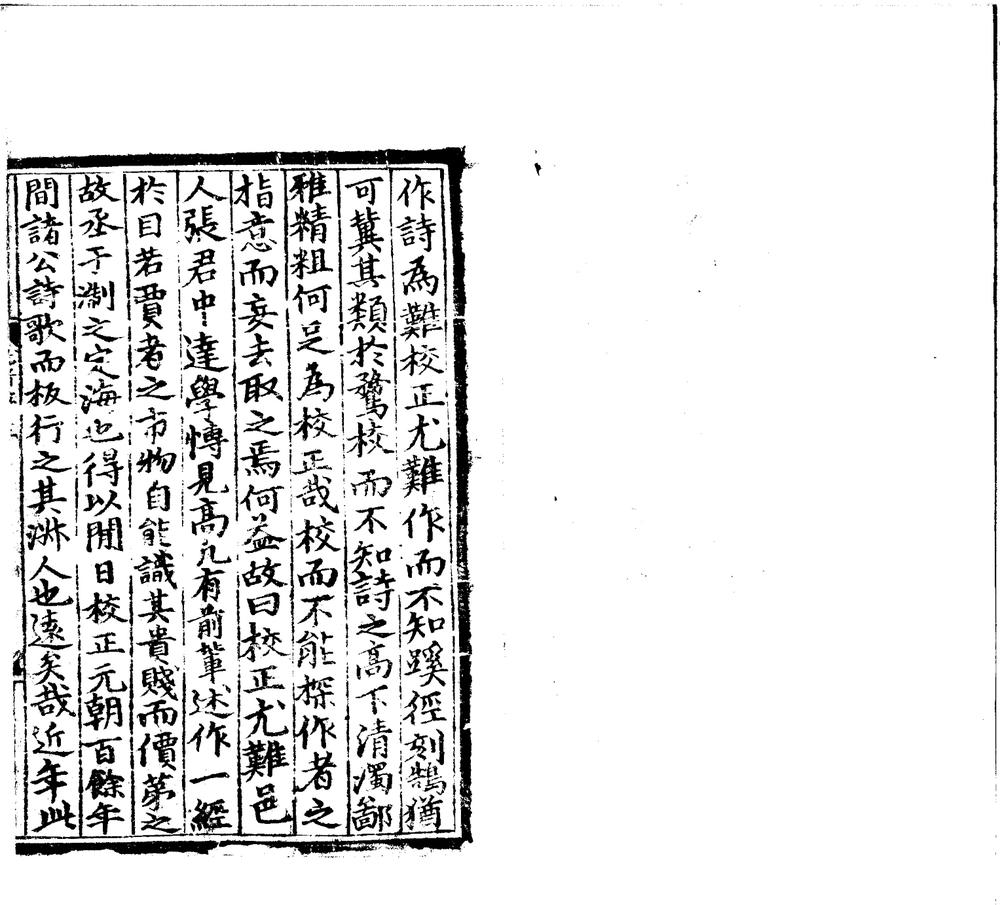 作詩為難校正尤難作而不知蹊徑刻鵠猶
可冀其類於鶩校而不知詩之高下清濁鄙
雅精粗何足為校正哉校而不能探作者之
指意而妄去取之焉何益故曰校正尤難邑
人張君中達學愽見高凢有前軰述作一經
扵目若賈者之市物自能識其貴賤而價苐之
故丞于淛之定海也得以閒日校正元朝百餘年
間諸公詩歌而板行之其淑人也遠矣哉近年此